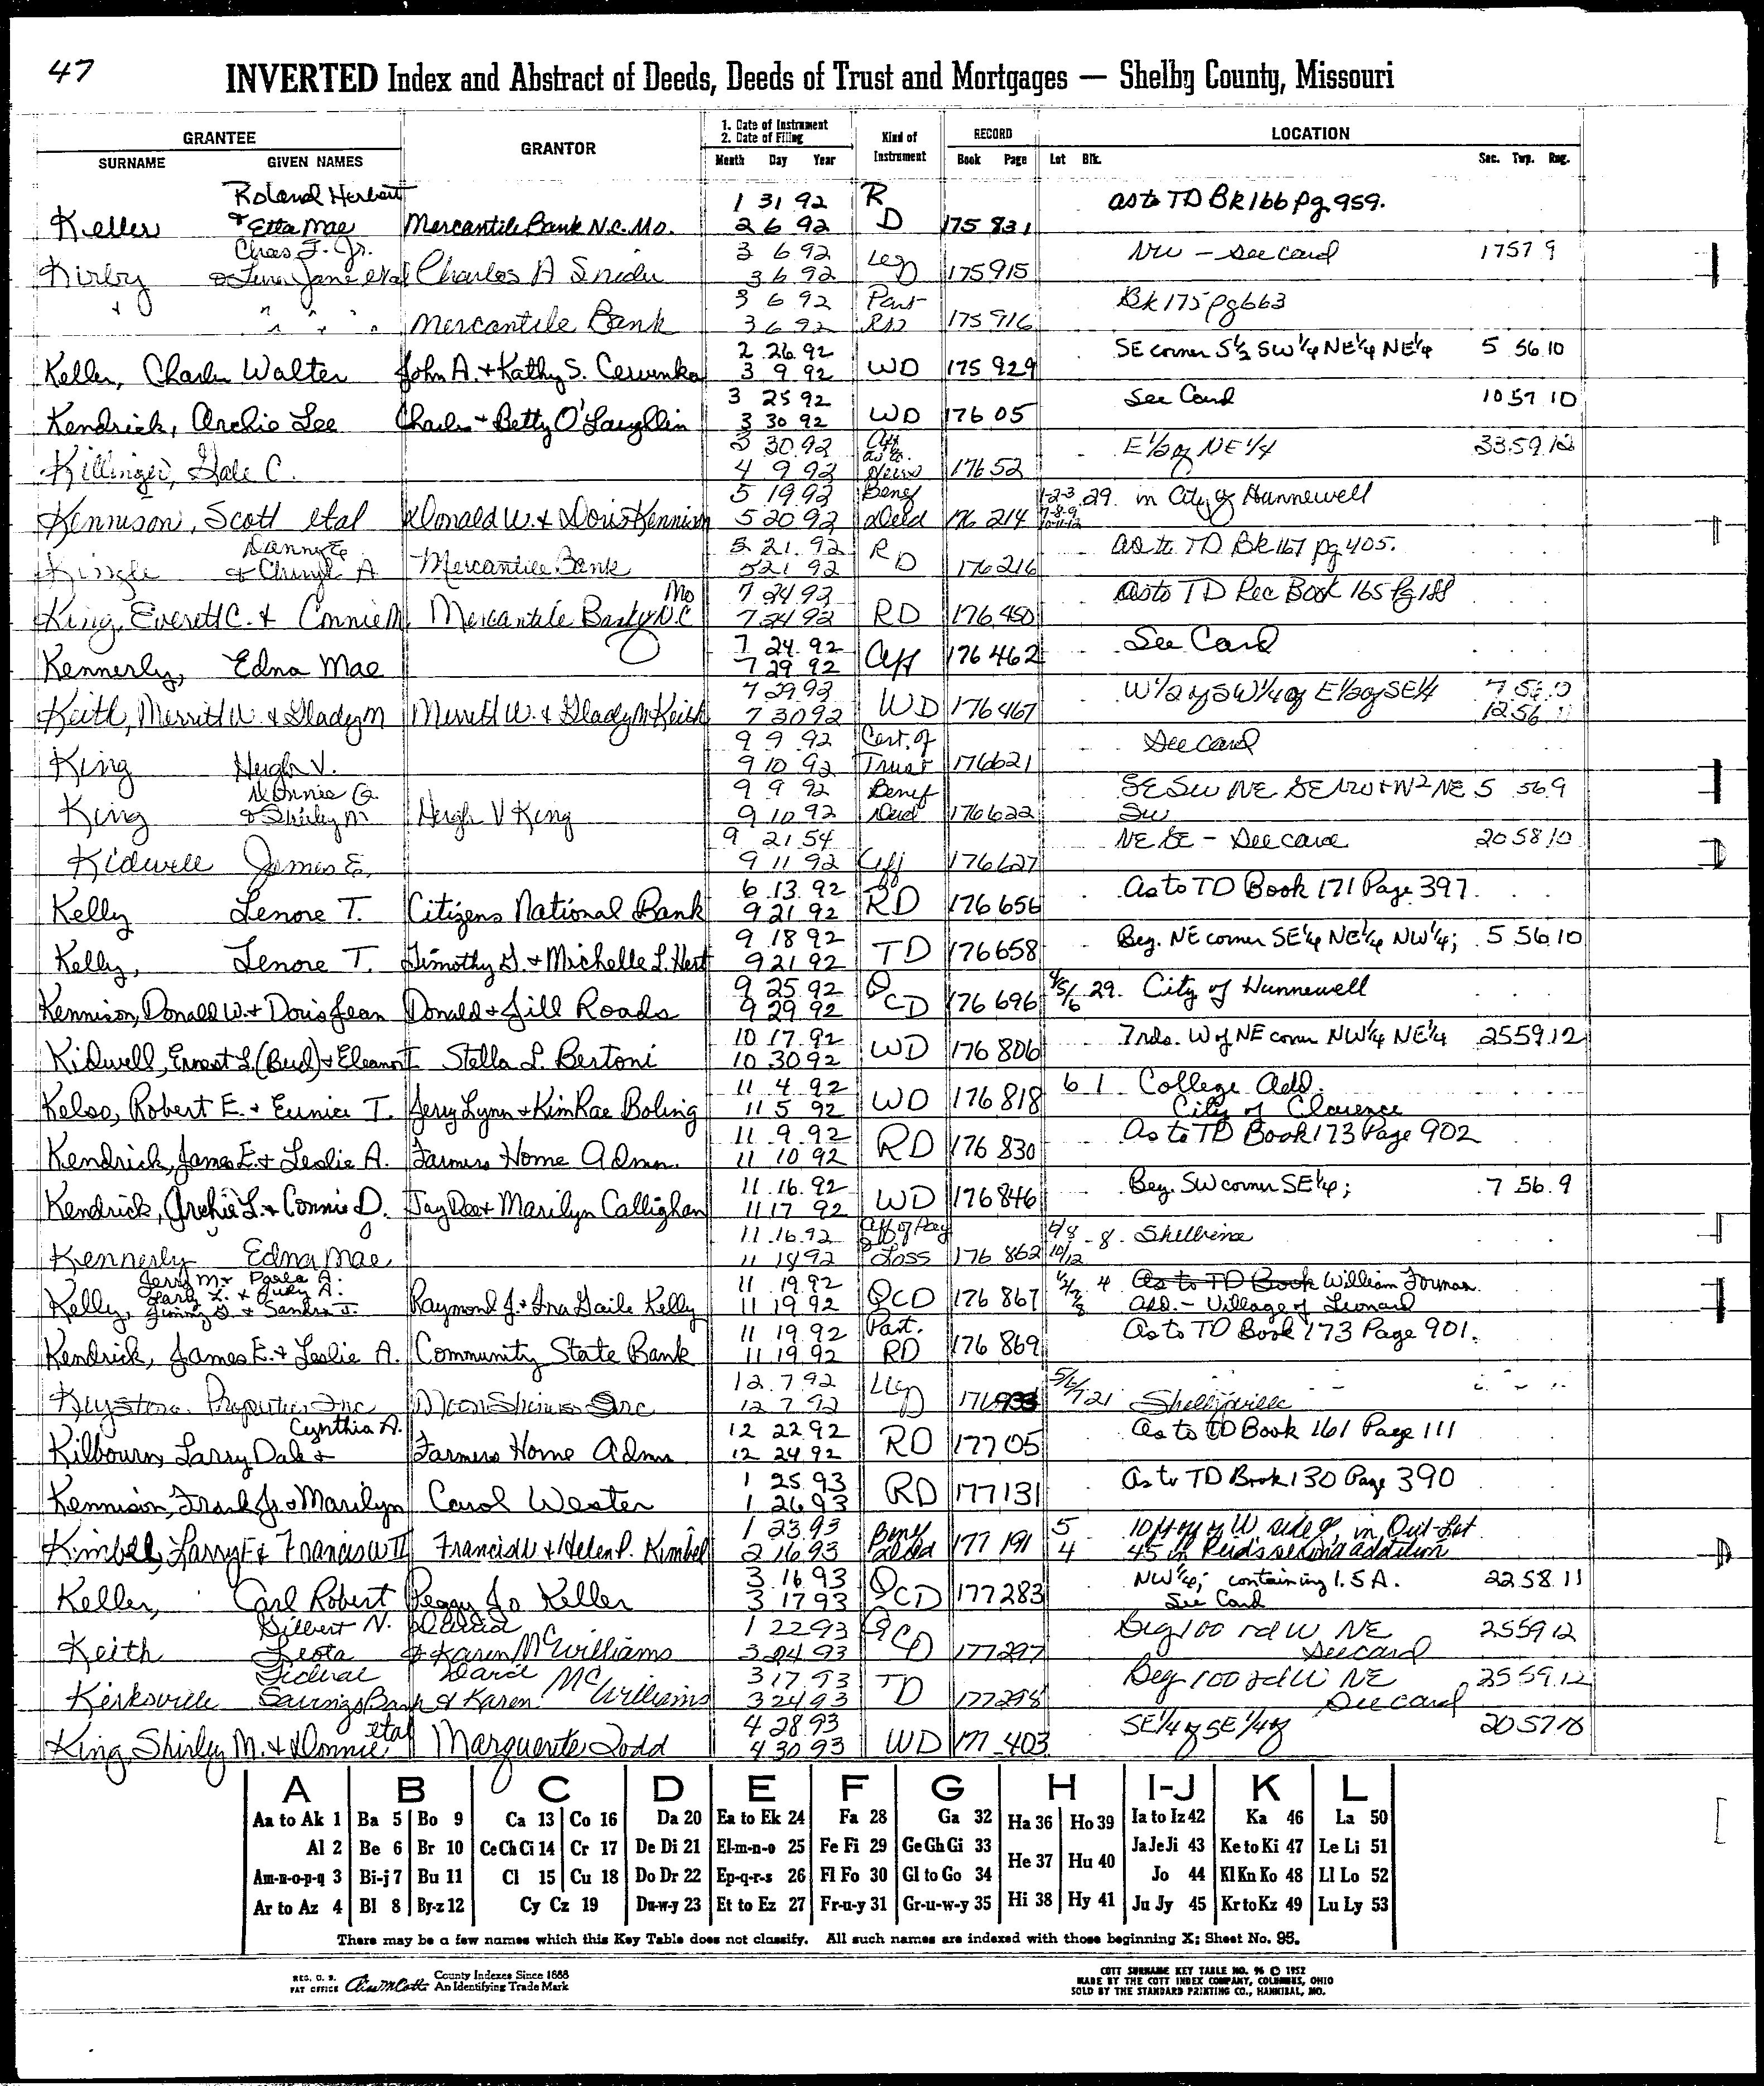 47
INVERTED Index and Abstract of Deeds, Deeds of Trust and Mortgages — Shelby County, Missouri
GRANTEE GRANTOR 1. Date of Instrument 2. Date of Filing Kind of Instrument RECORD LOCATION
SURNAME GIVEN NAMES Month Day Year Book Page Lot Blk. Sec. Twp. Rng.
Roland Herbert 1 31 92 R as to TD Bk 166 pg 959.
Keller & Etta Mae Mercantile Bank N.C. Mo. 2 6 92 D 175 831
Chas F. Jr. 3 6 92 NW - See card 17 57 9
Kirby & Jane etal Charles A Snider 3 6 92 D 175 915
3 6 92 Part Bk 175 pg 663
" " " " Mercantile Bank 3 6 92 RD 175 916
2 26 92 SE corner S½ SW¼ NE¼ NE¼ 5 56 10
Keller, Charles Walter John A. & Kathy S. Cervenka 3 9 92 WD 175 929
3 25 92 See Card 10 57 10
Kendrick, Archie Lee Charles & Betty O'Laughlin 3 30 92 WD 176 05
3 30 92 Aff as to E 1/2 of NE 1/4 33 59 12
Killinger, Gale C. 4 9 92 Heirs 176 52
5 19 92 Benef 1-2-3 29. in City of Hunnewell
Kennison, Scott etal Donald W. & Doris Kennison 5 20 92 Deed 176 214 7-8-9 10-11-12
Danny E. 5 21 92 R as to TD Bk 167 pg 405.
& Cheryl A Mercantile Bank 5 21 92 D 176 216
Mo 7 24 92 As to TD Rec Book 165 Pg 188
King, Everett C. & Connie M. Mercantile Bank of N.C 7 24 92 RD 176 450
7 24 92 See Card
Kennerly, Edna Mae 7 29 92 Aff 176 462
7 29 92 W 1/2 of SW 1/4 of E 1/2 of SE 1/4 7 56 10
Keith, Merritt W. & Gladys M Merritt W. & Gladys M Keith 7 30 92 WD 176 467 12 56 11
9 9 92 Cert. of See card
King Hugh V. 9 10 92 Trust 176 621
Donnie G. 9 9 92 Benef SE SW NE SE NW & N2 NE 5 56 9
King & Shirley M Hugh V King 9 10 92 Deed 176 622 SW
9 21 54 NE SE - See card 20 58 10
Kidwell James E. 9 11 92 Aff 176 627
6 13 92 As to TD Book 171 Page 397
Kelly Lenore T. Citizens National Bank 9 21 92 RD 176 656
9 18 92 Beg. NE corner SE¼ NE¼ NW¼; 5 56 10
Kelly, Lenore T. Timothy G. & Michelle L. Hert 9 21 92 TD 176 658
9 25 92 4/5/6 29. City of Hunnewell
Kennison, Donald W. & Doris Jean Donald & Jill Roads 9 29 92 QCD 176 696
10 17 92 7 rds. W of NE corner NW¼ NE¼ 25 59 12
Kidwell, Ernest L. (Bud) & Eleanor I Stella L. Bertoni 10 30 92 WD 176 806
11 4 92 6 1 College Add.
Kelso, Robert E. & Eunice T. Jerry Lynn & Kim Rae Boling 11 5 92 WD 176 818 City of Clarence
11 9 92 As to TD Book 173 Page 902
Kendrick, James E. & Leslie A. Farmers Home Admn. 11 10 92 RD 176 830
11 16 92 Beg. SW corner SE¼; 7 56 9
Kendrick, Archie L. & Connie D. Jay Dee & Marilyn Callighan 11 17 92 WD 176 846
11 16 92 8. Shelbina
Kennerly Edna Mae 11 18 92 Loss 176 862 10/12
Jerry M. & Paula A.
Larry L. & Judy A. 11 19 92 4 As to TD Book William Forman
Kelly, Jimmy D. & Sandra J. Raymond J. & Ina Gaile Kelly 11 19 92 QCD 176 867 Add. - Village of Leonard
11 19 92 Part. As to TD Book 173 Page 901.
Kendrick, James E. & Leslie A. Community State Bank 11 19 92 RD 176 869
12 7 92 5/6/7 21
Keystone Properties Inc Inc 12 7 92 D 176 933 Shelbyville
Cynthia A. 12 22 92 As to TD Book 161 Page 111
Kilbourn, Larry Dale & Farmers Home Admn 12 24 92 RD 177 05
1 25 93 As to TD Book 130 Page 390
Kennison, Frank Jr. & Marilyn Carol Wester 1 26 93 RD 177 131
1 23 93 Benf 5 10 ft W side in Out-Lot
Kimbel, Larry F & Francis W II Francis W & Helen P. Kimbel 2 16 93 Deed 177 191 4 45 in Reid's second addition
3 16 93 NW¼; containing 1.5 A. 22 58 11
Keller, Carl Robert Peggy Jo Keller 3 17 93 QCD 177 283 See Card
Gilbert N. David 1 22 93 Beg 100 rd W NE 25 59 12
Keith Leota & Karen McWilliams 3 24 93 QCD 177 297 See card
Federal David 3 17 93 Beg 100 rd W NE 25 59 12
Kirksville Savings Bank & Karen McWilliams 3 24 93 TD 177 298 See card
etal 4 28 93 SE 1/4 of SE 1/4 of 20 57 10
King, Shirley M. & Donnie Marguerite Todd 4 30 93 WD 177 403
A B C D E F G H I-J K L
Aa to Ak 1 Ba 5 Bo 9 Ca 13 Co 16 Da 20 Ea to Ek 24 Fa 28 Ga 32 Ha 36 Ho 39 Ia to Iz 42 Ka 46 La 50
Al 2 Be 6 Br 10 Ce Ch Ci 14 Cr 17 De Di 21 El-m-n-o 25 Fe Fi 29 Ge Gh Gi 33 He 37 Hu 40 Ja Je Ji 43 Ke to Ki 47 Le Li 51
Am-n-o-p-q 3 Bi-j 7 Bu 11 Cl 15 Cu 18 Do Dr 22 Ep-q-r-s 26 Fl Fo 30 Gl to Go 34 Jo 44 Kl Kn Ko 48 Ll Lo 52
Ar to Az 4 Bl 8 By-z 12 Cy Cz 19 Du-w-y 23 Et to Ez 27 Fr-u-y 31 Gr-u-w-y 35 Hi 38 Hy 41 Ju Jy 45 Kr to Kz 49 Lu Ly 53
There may be a few names which this Key Table does not classify. All such names are indexed with those beginning X; Sheet No. 95.
REG. U. S. PAT OFFICE County Indexes Since 1888 An Identifying Trade Mark
COTT SURNAME KEY TABLE NO. 96 © 1952
MADE BY THE COTT INDEX COMPANY, COLUMBUS, OHIO
SOLD BY THE STANDARD PRINTING CO., HANNIBAL, MO.